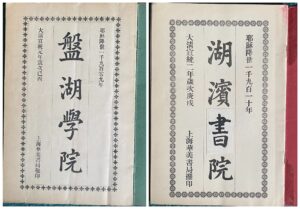 耶穌降世一千九百零九年
盤湖學院
大清宣統元年歲次己酉
上海華美書局擺印
耶穌降世一千九百一十年
湖濱書院
大清宣統二年歲次庚戌
上海華美書局擺印